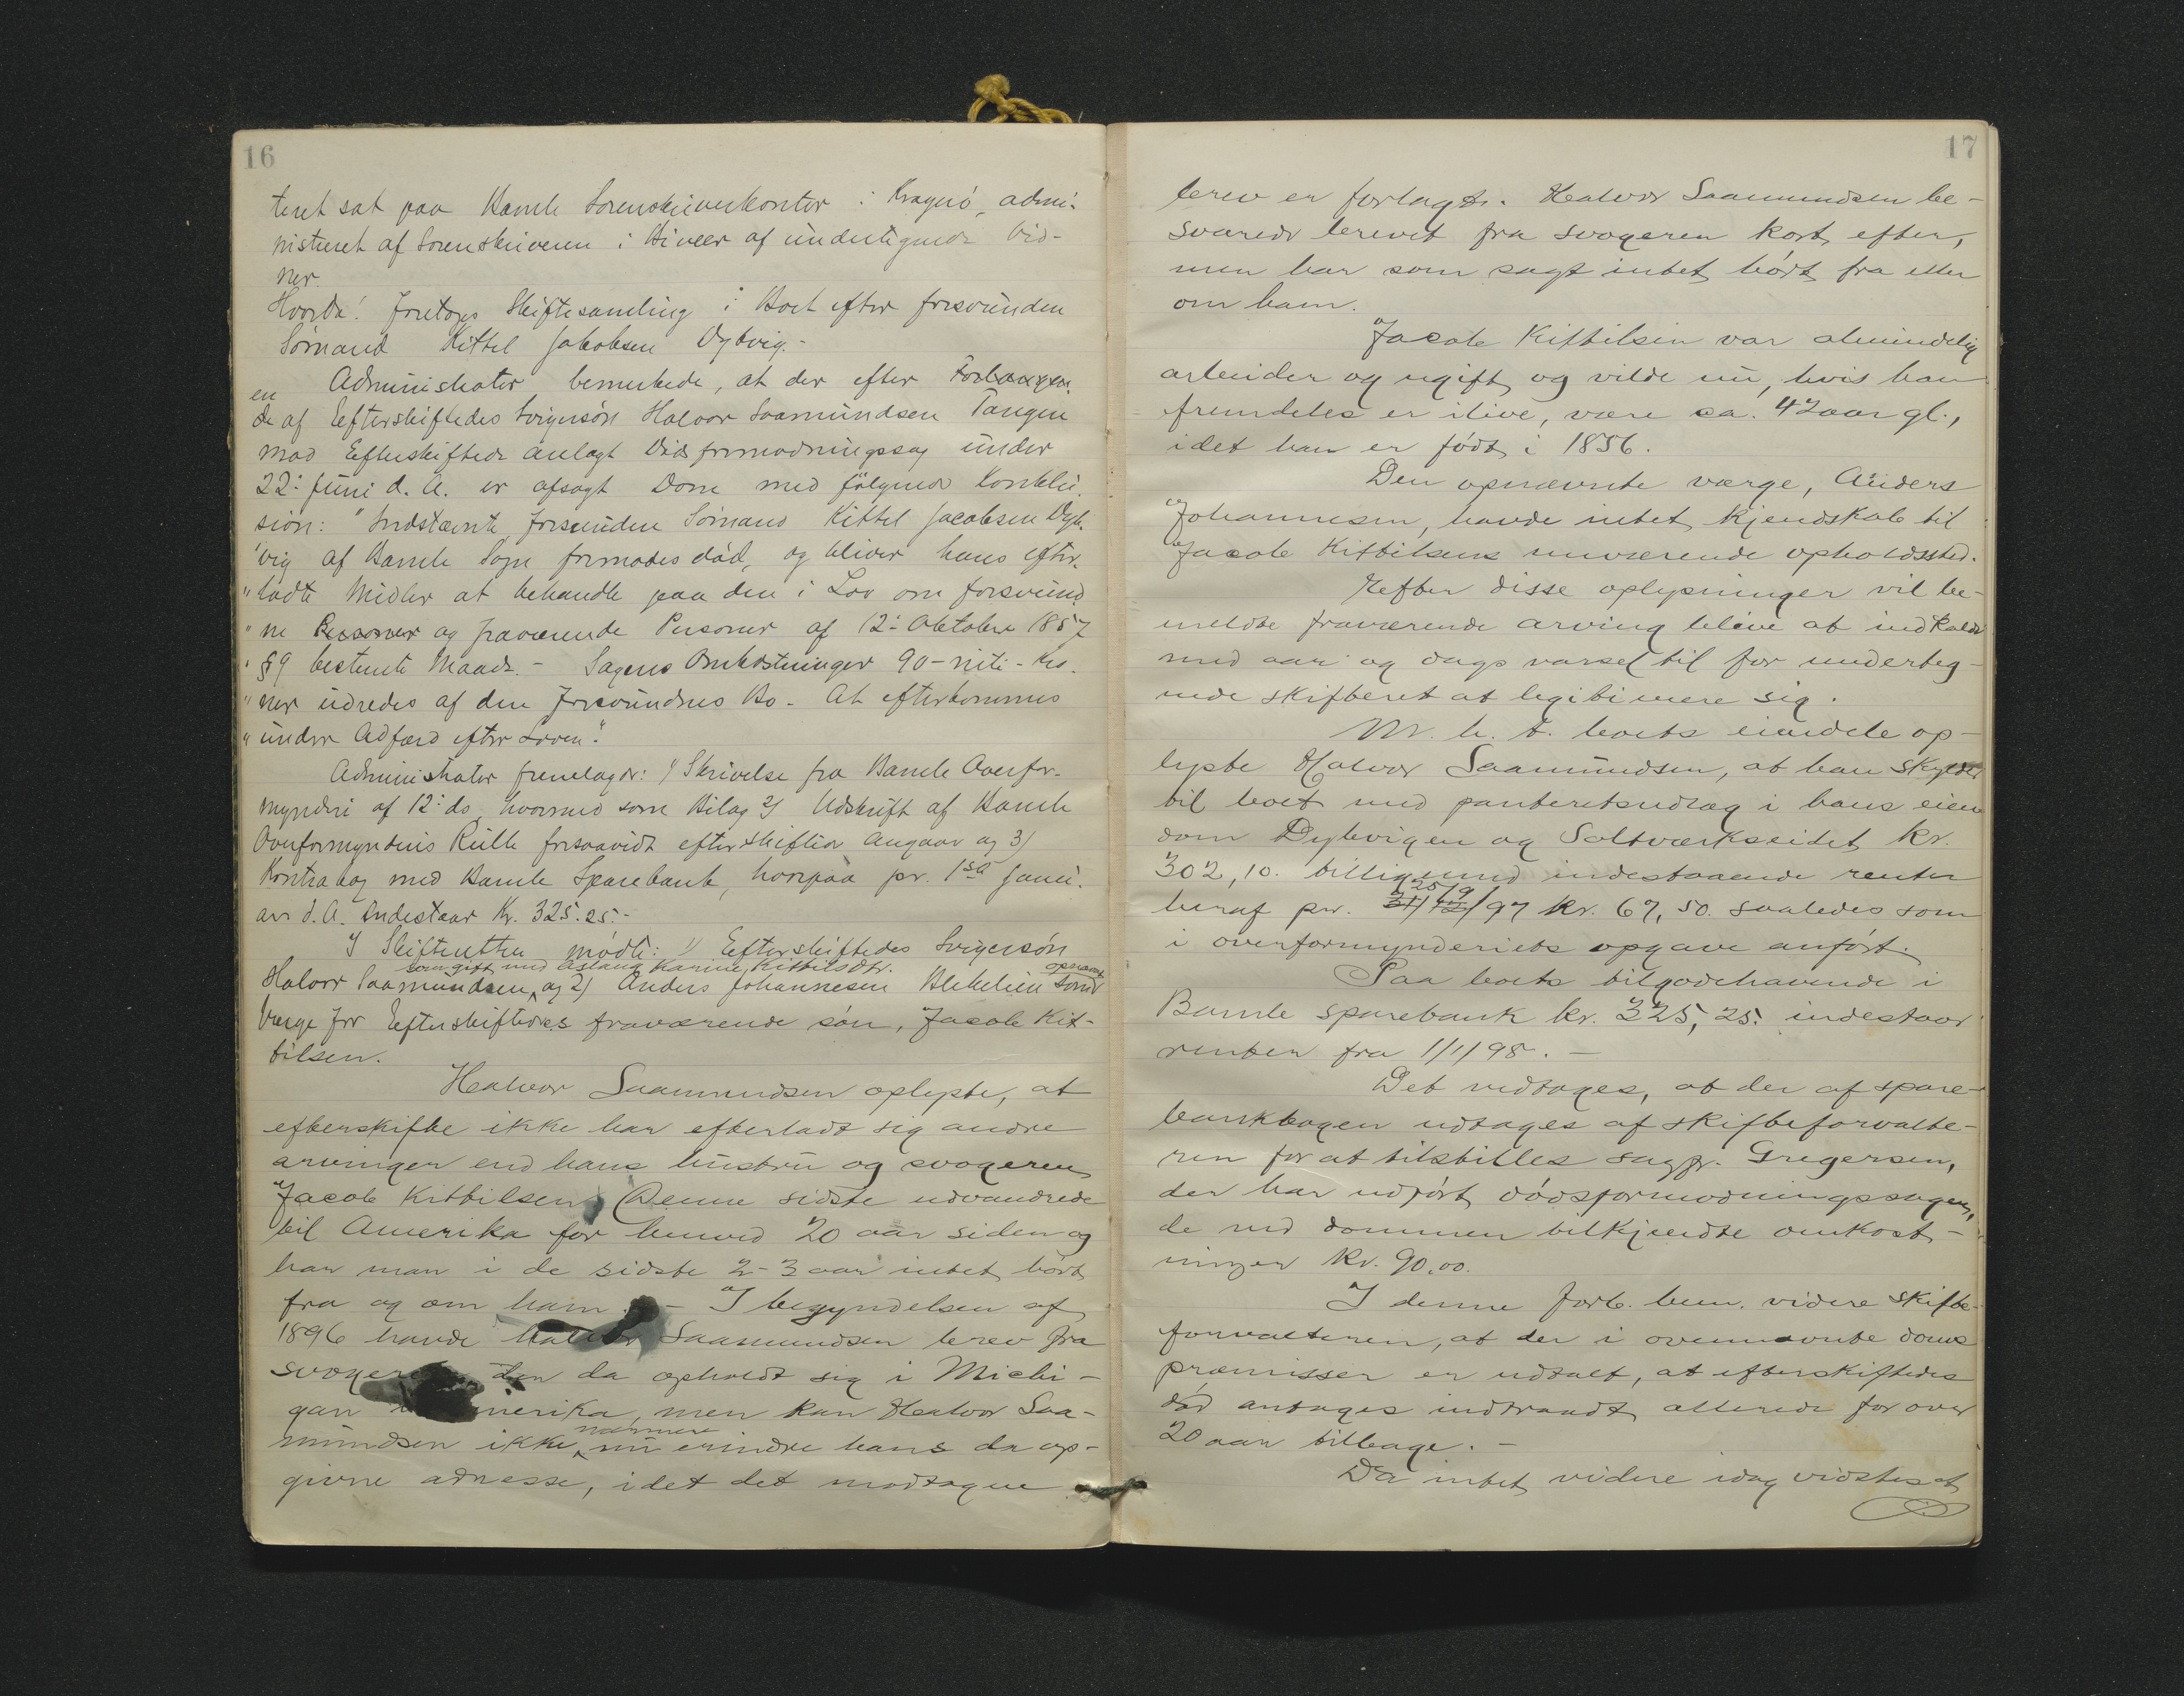 16
teret sat paa Bamle Sorenskriverkontor i Kragerø, admi-
nistreret af Sorenskriveren i Biveer af undertegnede Vid-
ner.
Hvorda! Foretoges Skiftesamling i Boet efter forsvunden
Sømand Kittel Jakobsen Dybvig.-
Administrator bemerkede, at der efter Forlangen
en
de af Efterskiftedes Svigersøn Halvor Saamundsen Tangen
mod Efterskiftede anlagt Dødsformodningssag under
22: Juni d. A. er afsagt Dom med følgende Konklu-
sion: "Indstævnte forsvunden Sømand Kittel Jacobsen Dyb-
"vig af Bamle Sogn formodes død, og bliver hans efter-
"ladte Midler at behandle paa den i Lov om forsvund
"ne Personer og fraværende Personer af 12: Oktober 1857
"§9 bestemte Maade. - Sagens Omkostninger 90 - niti - Kro-
"ner udredes af den Forsvundnes Bo. - At efterkommes
"under Adfærd efter Loven."
Administrator fremlagde: 1/ Skrivelse fra Bamle Overfor-
mynderi af 12: ds, hvormed som Bilag 2/ Udskrift af Bamle
Overformynderis Rulle forsaavidt efterskiftede angaar og 3/
Kontrabog med Bamle Sparebank, hvorpaa pr. 1ste Janu-
ar d. A. indestaar Kr. 325.25.-
I Skifteretten mødte: 1/ Efterskiftedes Svigersøn
som gift med Aslaug Karine Kittilsdtr. opnævnt
Halvor Saamundsen, og 2/ Anders Johannesen Blekelien som
Verge for Efterskiftedes fraværende søn, Jacob Kit-
tilsen.
Halvor Saamundsen oplyste, at
efterskifte ikke har efterladt sig andre
arvinger end hans hustru og svogeren
Jacob Kittilsen. Denne sidste udvandrede
til Amerika for henved 20 aar siden og
har man i de sidste 2-3 aar intet hørt
fra og om ham. - I begyndelsen af
1896 havde Halvor Saamundsen brev fra
svogeren, der da opholdt sig i Michi-
gan i Amerika, men kan Halvor Saa-
nærmere
mundsen ikke nu erindre hans da op-
givne adresse, idet det modtagne
17
brev er forlagt. Halvor Saamundsen be-
svarede brevet fra svogeren kort efter,
men har som sagt intet hørt fra eller
om ham.
Jacob Kittilsen var almindelig
arbeider og ugift og vilde nu, hvis han
fremdeles er ilive, være ca. 42 aar gl.,
idet han er født i 1856.
Den opnævnte værge, Anders
Johannesen, havde intet kjendskab til
Jacob Kittilsens nuværende opholdssted.
Efter disse oplysninger vil be-
meldte fraværende arving blive at indkalde
med aar og dags varsel til for underteg-
nede skifteret at legitimere sig.
M. h. t. boets eiendele op-
lyste Halvor Saamundsen, at han skylder
til boet med panteretsudlæg i hans eien
dom Dybvigen og Saltværkseidet kr.
302,10. tilligemed indestaaende renter
25 9
heraf pr. 31/12/97 kr. 67,50. saaledes som
i overformynderiets opgave anført.
Paa boets tilgodehavende i
Bamle sparebank kr. 325,25. indestaar
renter fra 1/1/98. -
Det vedtoges, at der af spare-
bankbogen udtages af skifteforvalte-
ren for at tilstilles sagfr. Gregersen,
der har udført dødsformodningssagen,
de ved dommen tilkjendte omkost-
ninger kr. 90,00.
I denne forb. bem. videre skifte-
forvalteren, at der i ovennævnte doms
præmisser er udtalt, at efterskiftedes
død antages indtraadt allerede for over
20 aar tilbage. -
Da intet videre idag vidstes at